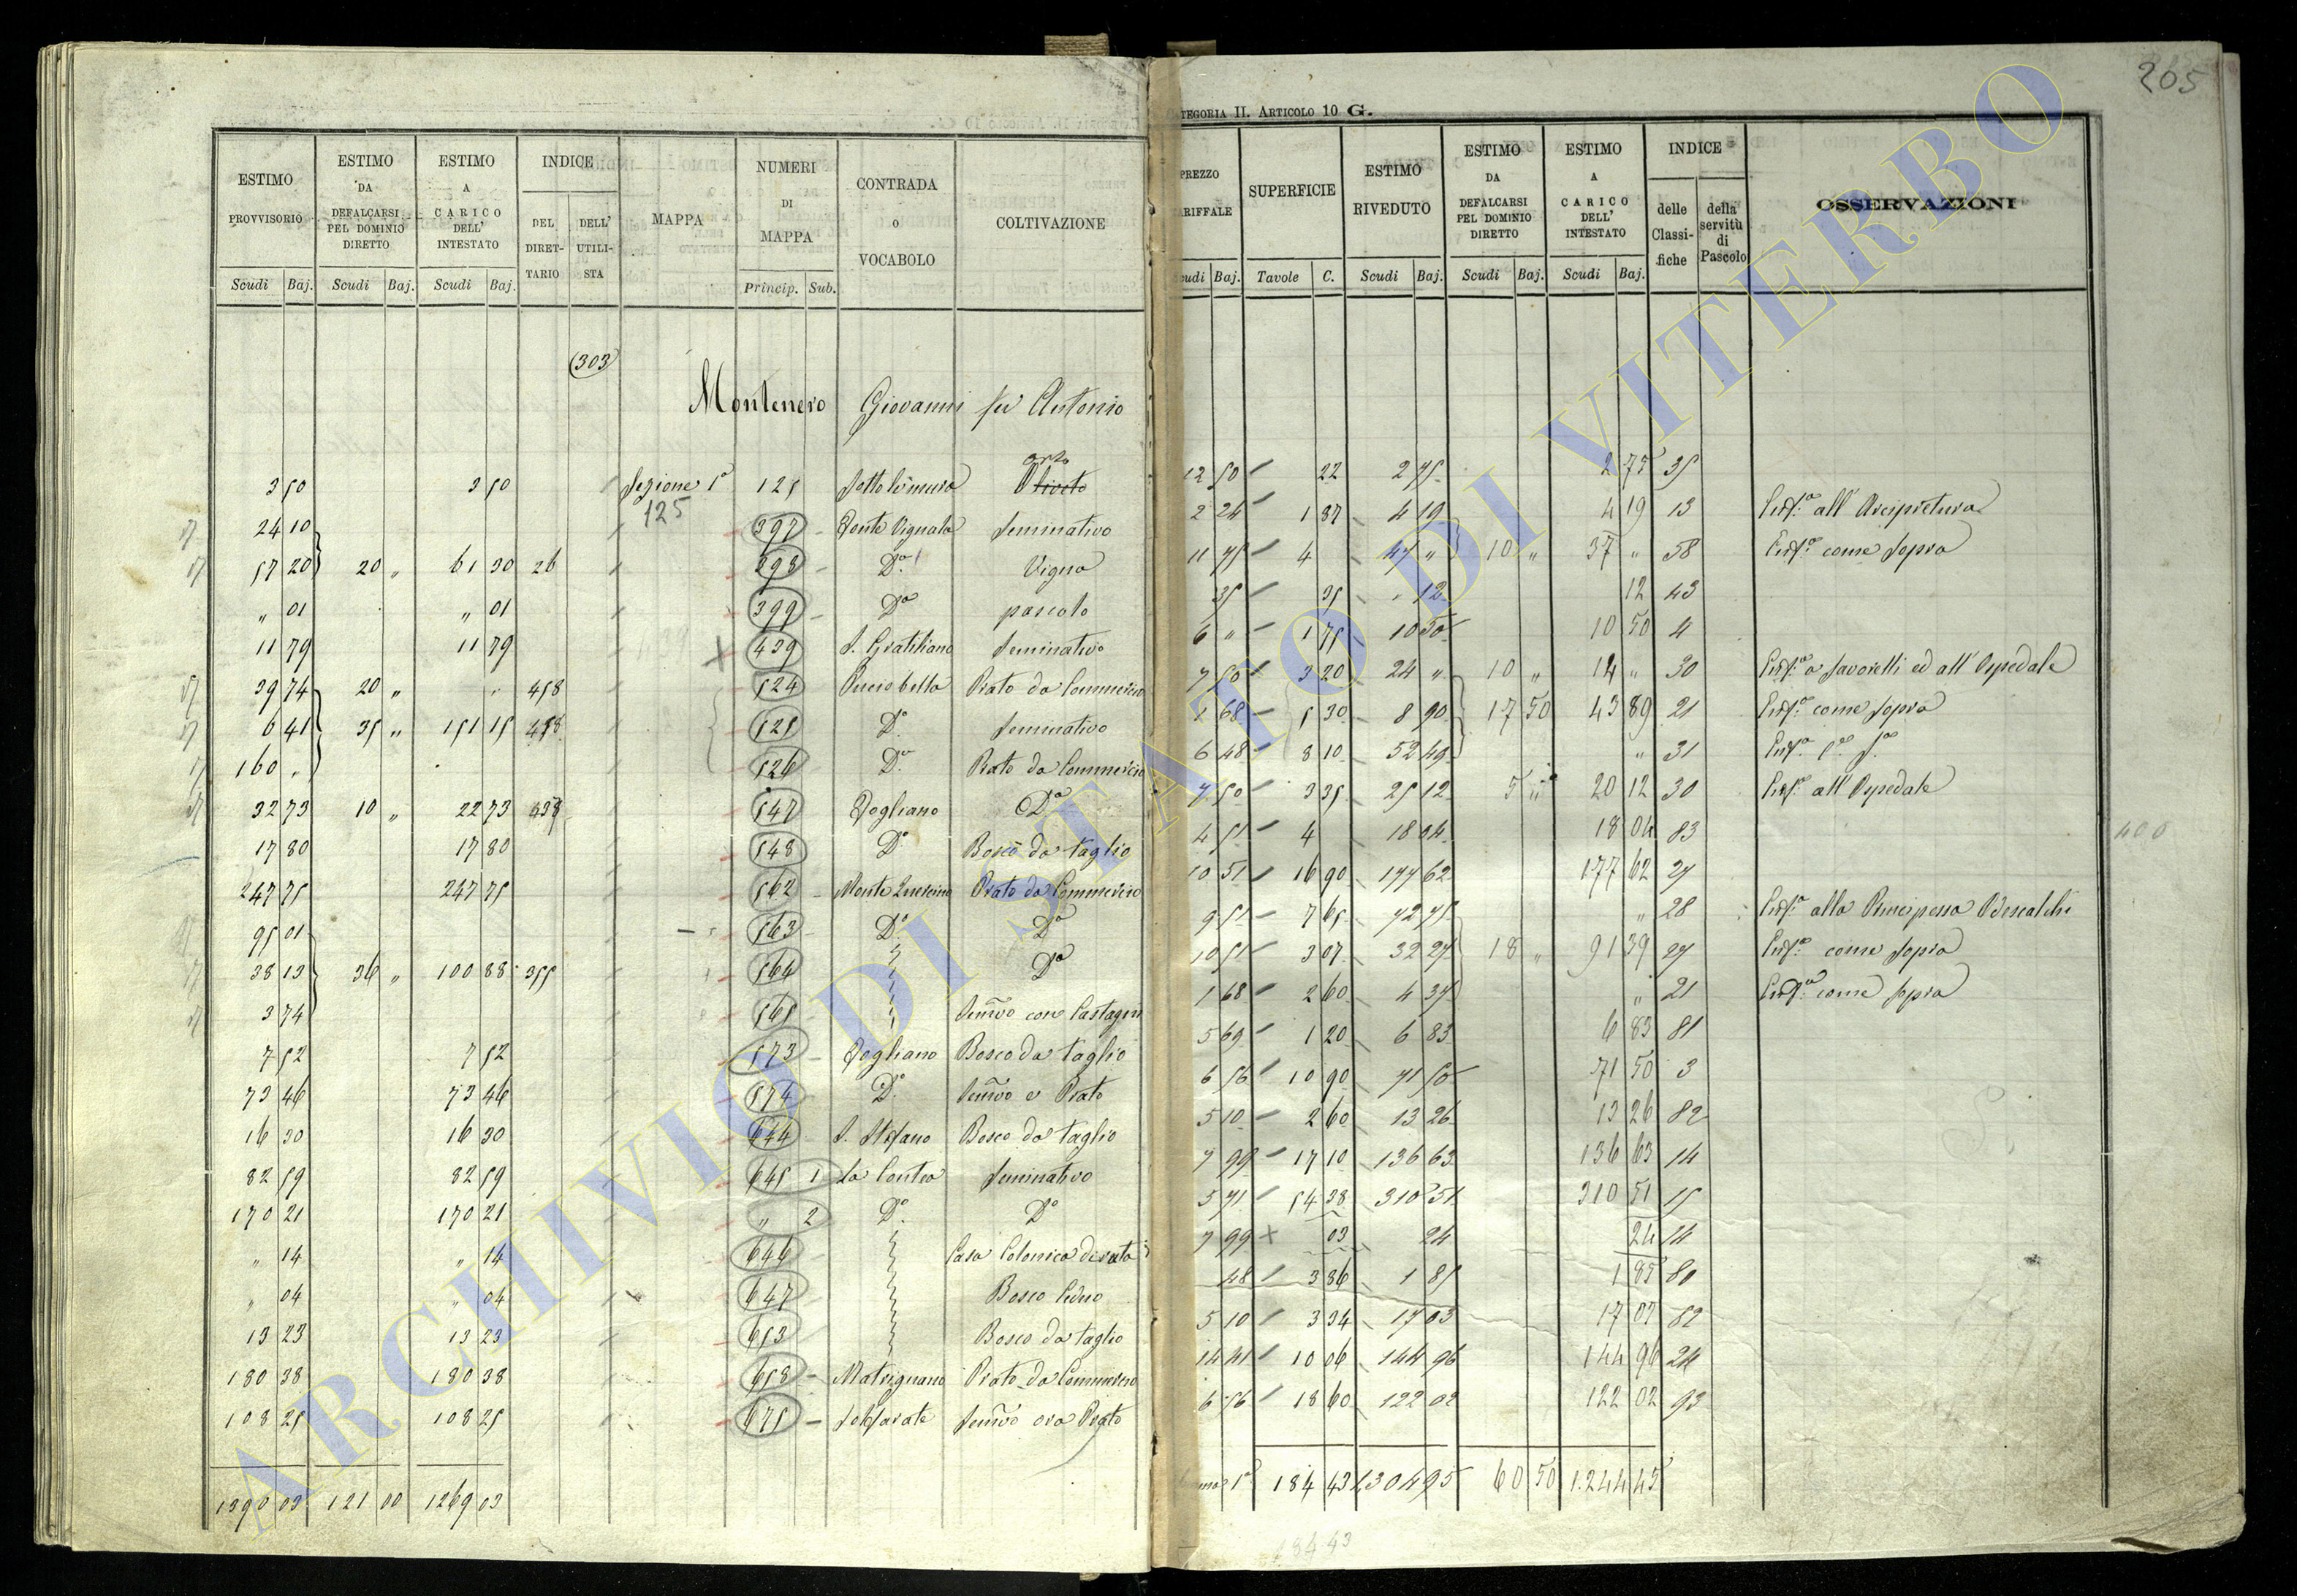 205
CATEGORIA II. ARTICOLO 10 G.
ESTIMO PROVVISORIO Scudi Baj.
ESTIMO DA DEFALCARSI PEL DOMINIO DIRETTO Scudi Baj.
ESTIMO A CARICO DELL' INTESTATO Scudi Baj.
INDICE DEL DIRETTARIO DELL' UTILISTA
MAPPA
NUMERI DI MAPPA Princip. Sub.
CONTRADA O VOCABOLO
COLTIVAZIONE
PREZZO TARIFFALE Scudi Baj.
SUPERFICIE Tavole C.
ESTIMO RIVEDUTO Scudi Baj.
ESTIMO DA DEFALCARSI PEL DOMINIO DIRETTO Scudi Baj.
ESTIMO A CARICO DELL' INTESTATO Scudi Baj.
INDICE delle Classifiche della servitù di Pascolo
OSSERVAZIONI
303
Montenero Giovanni fu Antonio
orto
3 50 3 50 Sezione 1a 125 Sottolemura Oliveto 12 50 22 2 75 2 75 35
125
24 10 397 Fonte Vignala Seminativo 2 24 1 87 4 19 4 19 13 all' Arcipretura
57 20 20 „ 61 30 26 398 Do Vigna 11 75 4 47 „ 10 „ 37 „ 58 come sopra
„ 01 „ 01 399 Do pascolo 35 35 „ 12 12 43
11 79 11 79 439 S. Gratiliano Seminativo 6 „ 1 75 10 50 10 50 4
39 74 20 „ 458 524 Prato da Commercio 7 50 3 20 24 „ 10 „ 14 „ 30 a Savorelli ed all' Ospedale
6 41 35 „ 151 15 458 525 Do Seminativo 1 68 5 30 8 90 17 50 43 89 21 come sopra
160 „ 526 Do Prato da Commercio 6 48 8 10 52 49 „ 31
32 73 10 „ 22 73 458 547 Fogliano Do 7 50 3 35 25 12 5 „ 20 12 30 all' Ospedale
17 80 17 80 548 Do Bosco da taglio 4 51 4 18 04 18 04 83
400
247 75 247 75 562 Monte Prato da Commercio 10 51 16 90 177 62 177 62 27
95 01 563 Do Do 9 51 7 65 72 75 „ 28 alla Principessa Odescalchi
38 13 36 „ 100 88 355 564 Do 10 51 3 07 32 27 18 „ 91 39 27 come sopra
3 74 565 Semivo con Castagni 1 68 2 60 4 37 „ 21 come sopra
7 52 7 52 573 Fogliano Bosco da taglio 5 69 1 20 6 83 6 83 81
73 46 73 46 574 Do Semivo e Prato 6 56 10 90 71 50 71 50 3
16 30 16 30 644 S. Stefano Bosco da taglio 5 10 2 60 13 26 13 26 82
82 59 82 59 645 1 La Contea Seminativo 7 99 17 10 136 63 136 63 14
170 21 170 21 „ 2 Do Do 5 71 54 38 310 51 310 51 15
„ 14 „ 14 646 Casa Colonica 7 99 03 24 24 14
„ 04 „ 04 647 Bosco Ceduo 48 3 86 1 85 1 85 80
13 23 13 23 653 Bosco da taglio 5 10 3 34 17 03 17 03 82
180 38 180 38 658 Matrignano Prato da Commercio 14 41 10 06 144 96 144 96 24
108 25 108 25 675 Solfarate Semivo ora Prato 6 56 18 60 122 02 122 02 93
1390 03 121 00 1269 03 184 43 1304 95 60 50 1244 45
184 43
ARCHIVIO DI STATO DI VITERBO